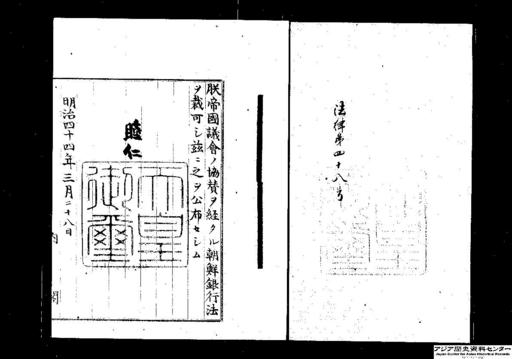 法律第四十八号
朕帝國議會ノ協賛ヲ経タル朝鮮銀行法
ヲ裁可シ玆ニ之ヲ公布セシム
睦仁
天皇御璽
明治四十四年三月二十八日
内閣
アジア歴史資料センター
Japan Center for Asian Historical Records